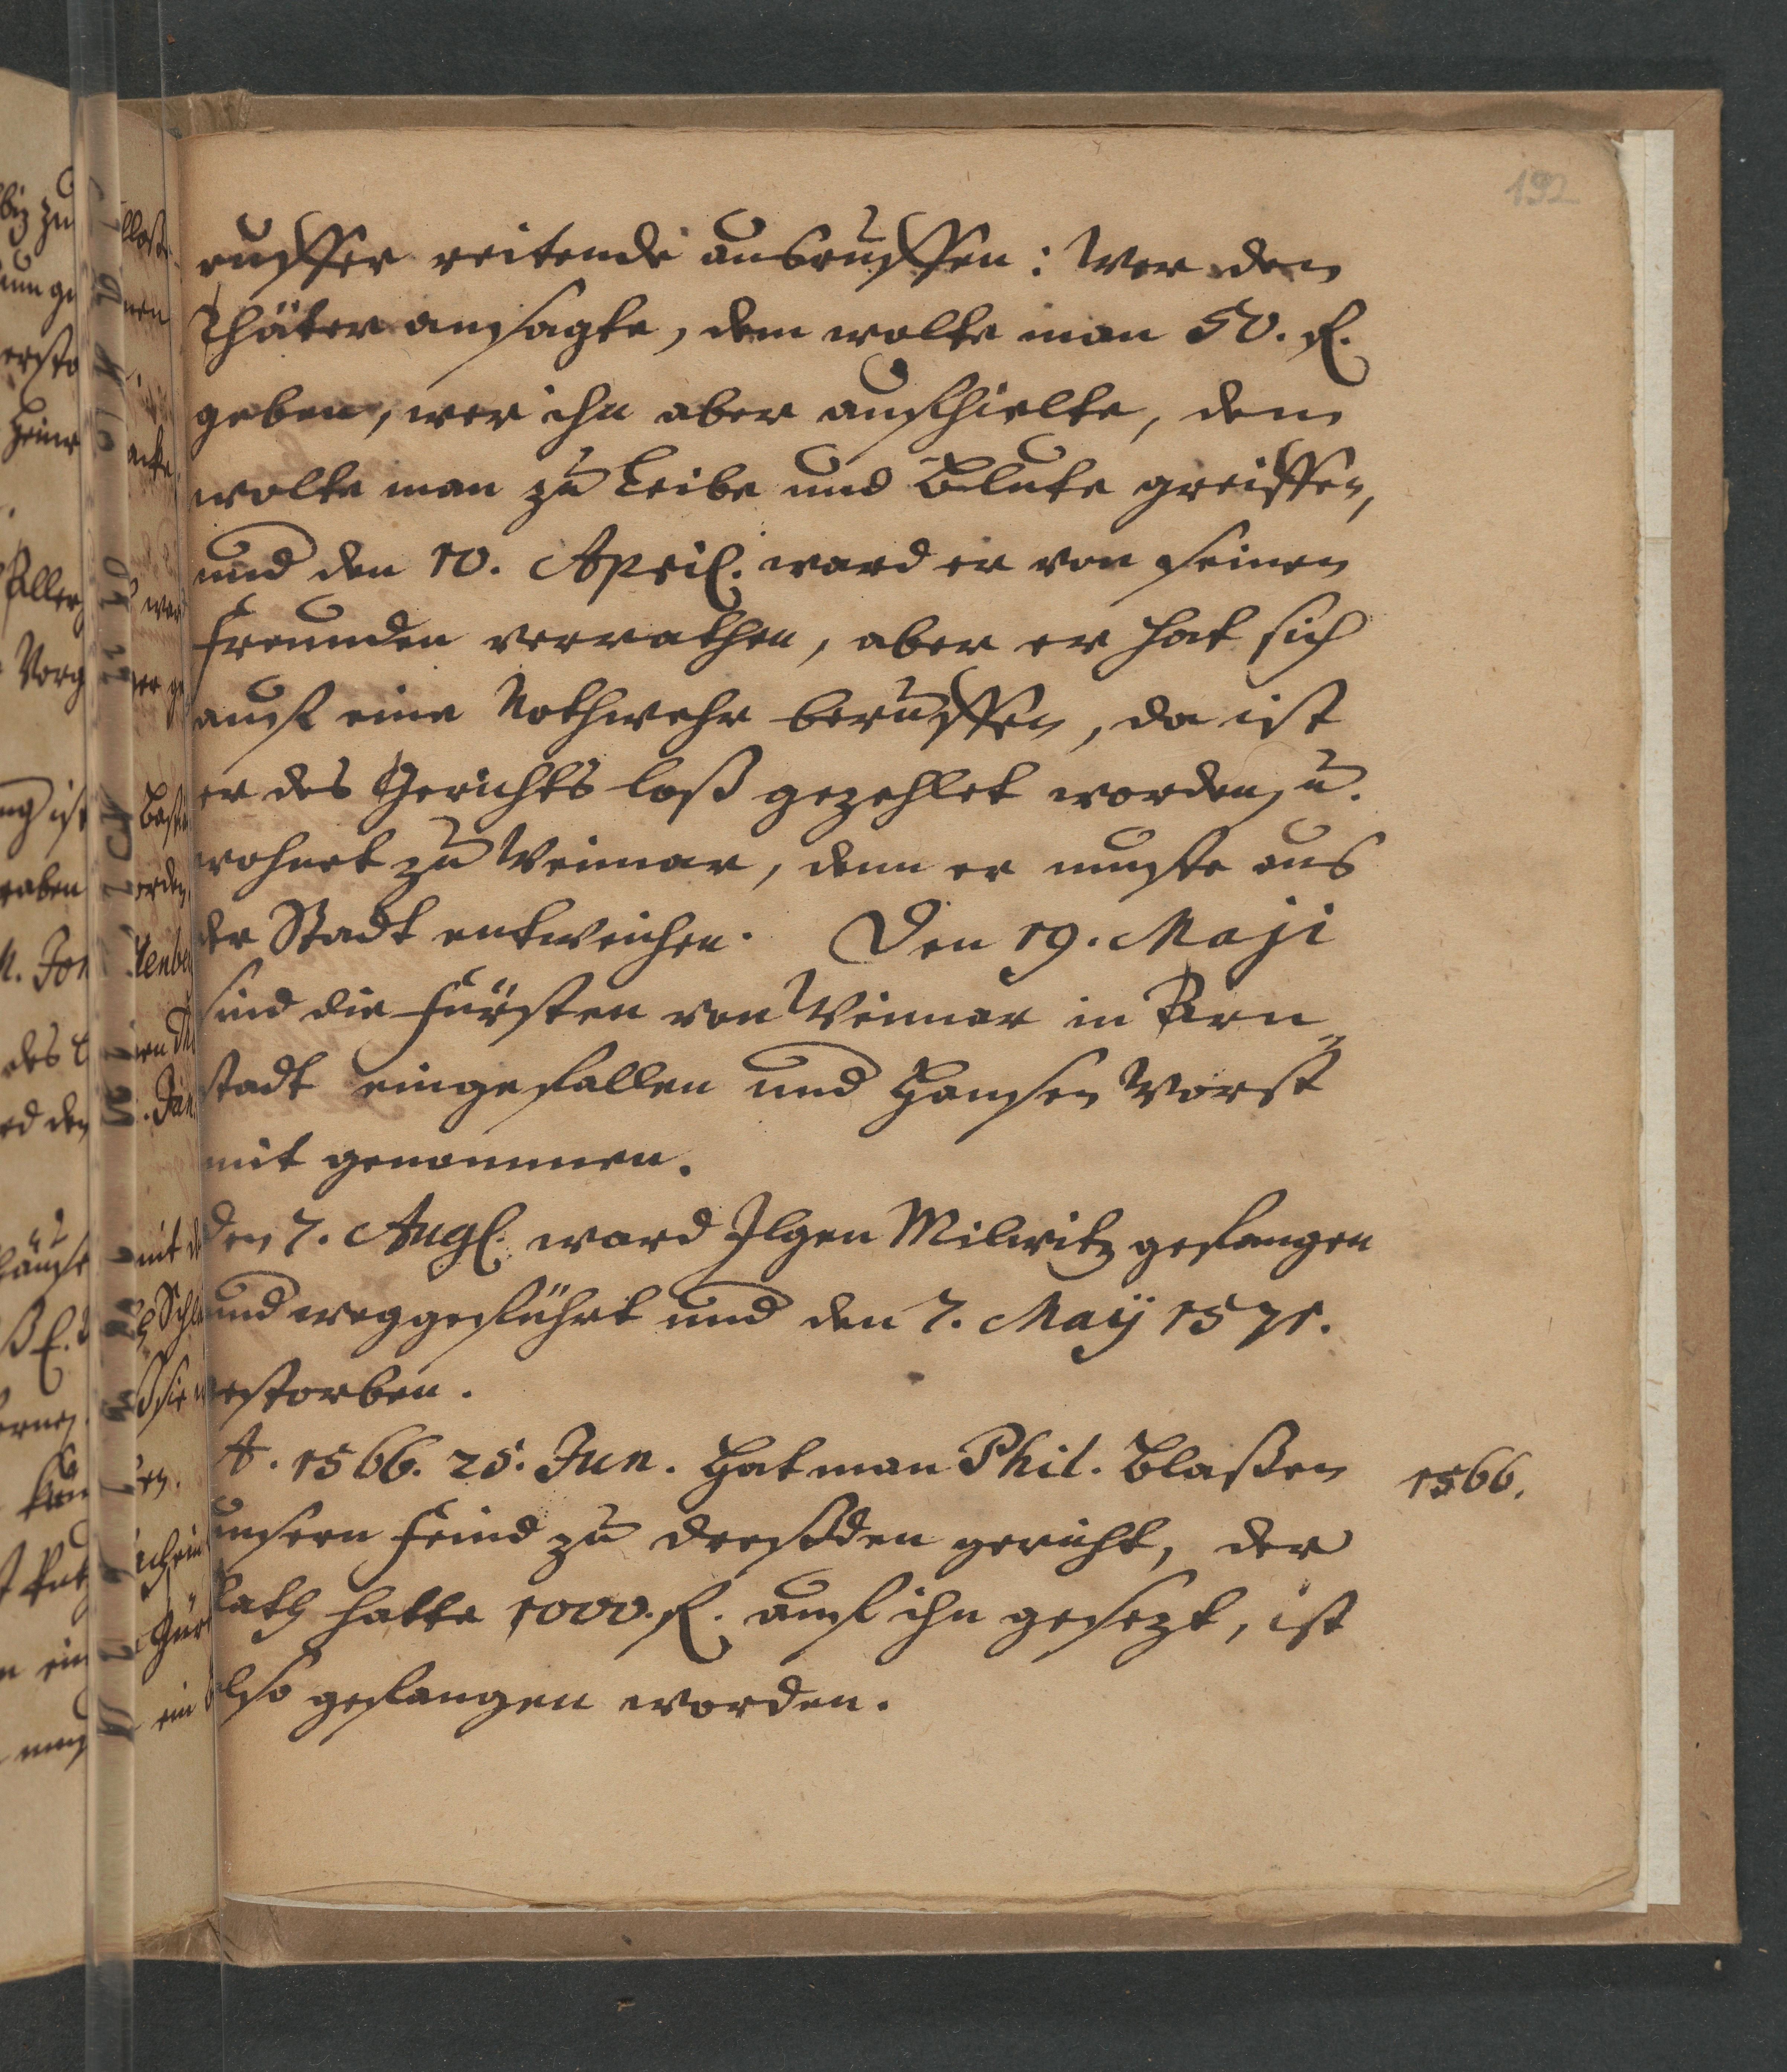 192
ruffer reitende ausruffen: Wer den
Thäter ansagte, dem wolte man 50. fl.
geben, wer ihn aber aufhielte, dem
wolte man zu Leibe und Blute greiffen,
und den 10. April. ward er von seinen
Freunden verrathen, aber er hat sich
auf eine Nothwehr beruffen, da ist
er des Gerichts loß gezehlet worden, u.
wohnet zu Weimar, denn er muste aus
der Stadt entweichen. Den 19. Maji
sind die Fürsten von Weimar in Arn=
stadt eingefallen und Hansen Vorst
mit genommen.
den 7. Aug. ward Ilgen Milwitz gefangen
und weggeführt und den 7. Maij 1571.
gestorben.
A. 1566. 25. Jun. Hat man Phil. Blaßen
1566.
unsern Feind zu Dreßden gericht, der
Rath hatte 1000. fl. auf ihn gesezt, ist
also gefangen worden.